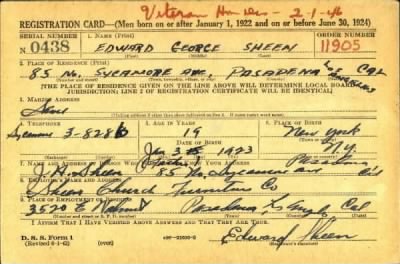 Veteran 2-1-46
REGISTRATION CARD—(Men born on or after January 1, 1922 and on or before June 30, 1924)
SERIAL NUMBER 1. NAME (Print) ORDER NUMBER
N 0438 EDWARD GEORGE SHEEN 11905
2. PLACE OF RESIDENCE (Print)
85 No. SYCAMORE AVE, PASADENA Los Angeles CAL
[THE PLACE OF RESIDENCE GIVEN ON THE LINE ABOVE WILL DETERMINE LOCAL BOARD
JURISDICTION; LINE 2 OF REGISTRATION CERTIFICATE WILL BE IDENTICAL]
3. MAILING ADDRESS
Same
4. TELEPHONE 5. AGE IN YEARS 6. PLACE OF BIRTH
Sycamore 3-8286 19 New York
DATE OF BIRTH
Jan 3 1923 N.Y.
7. NAME AND ADDRESS OF PERSON WHO
J. H. Sheen 85 No. Sycamore Ave Pasadena
8. EMPLOYER'S NAME AND ADDRESS
Sheen Church Furniture Co
9. PLACE OF EMPLOYMENT OR BUSINESS
3520 E Pasadena Los Angeles Cal
I AFFIRM THAT I HAVE VERIFIED ABOVE ANSWERS AND THAT THEY ARE TRUE.
D. S. S. Form 1
Edward Sheen